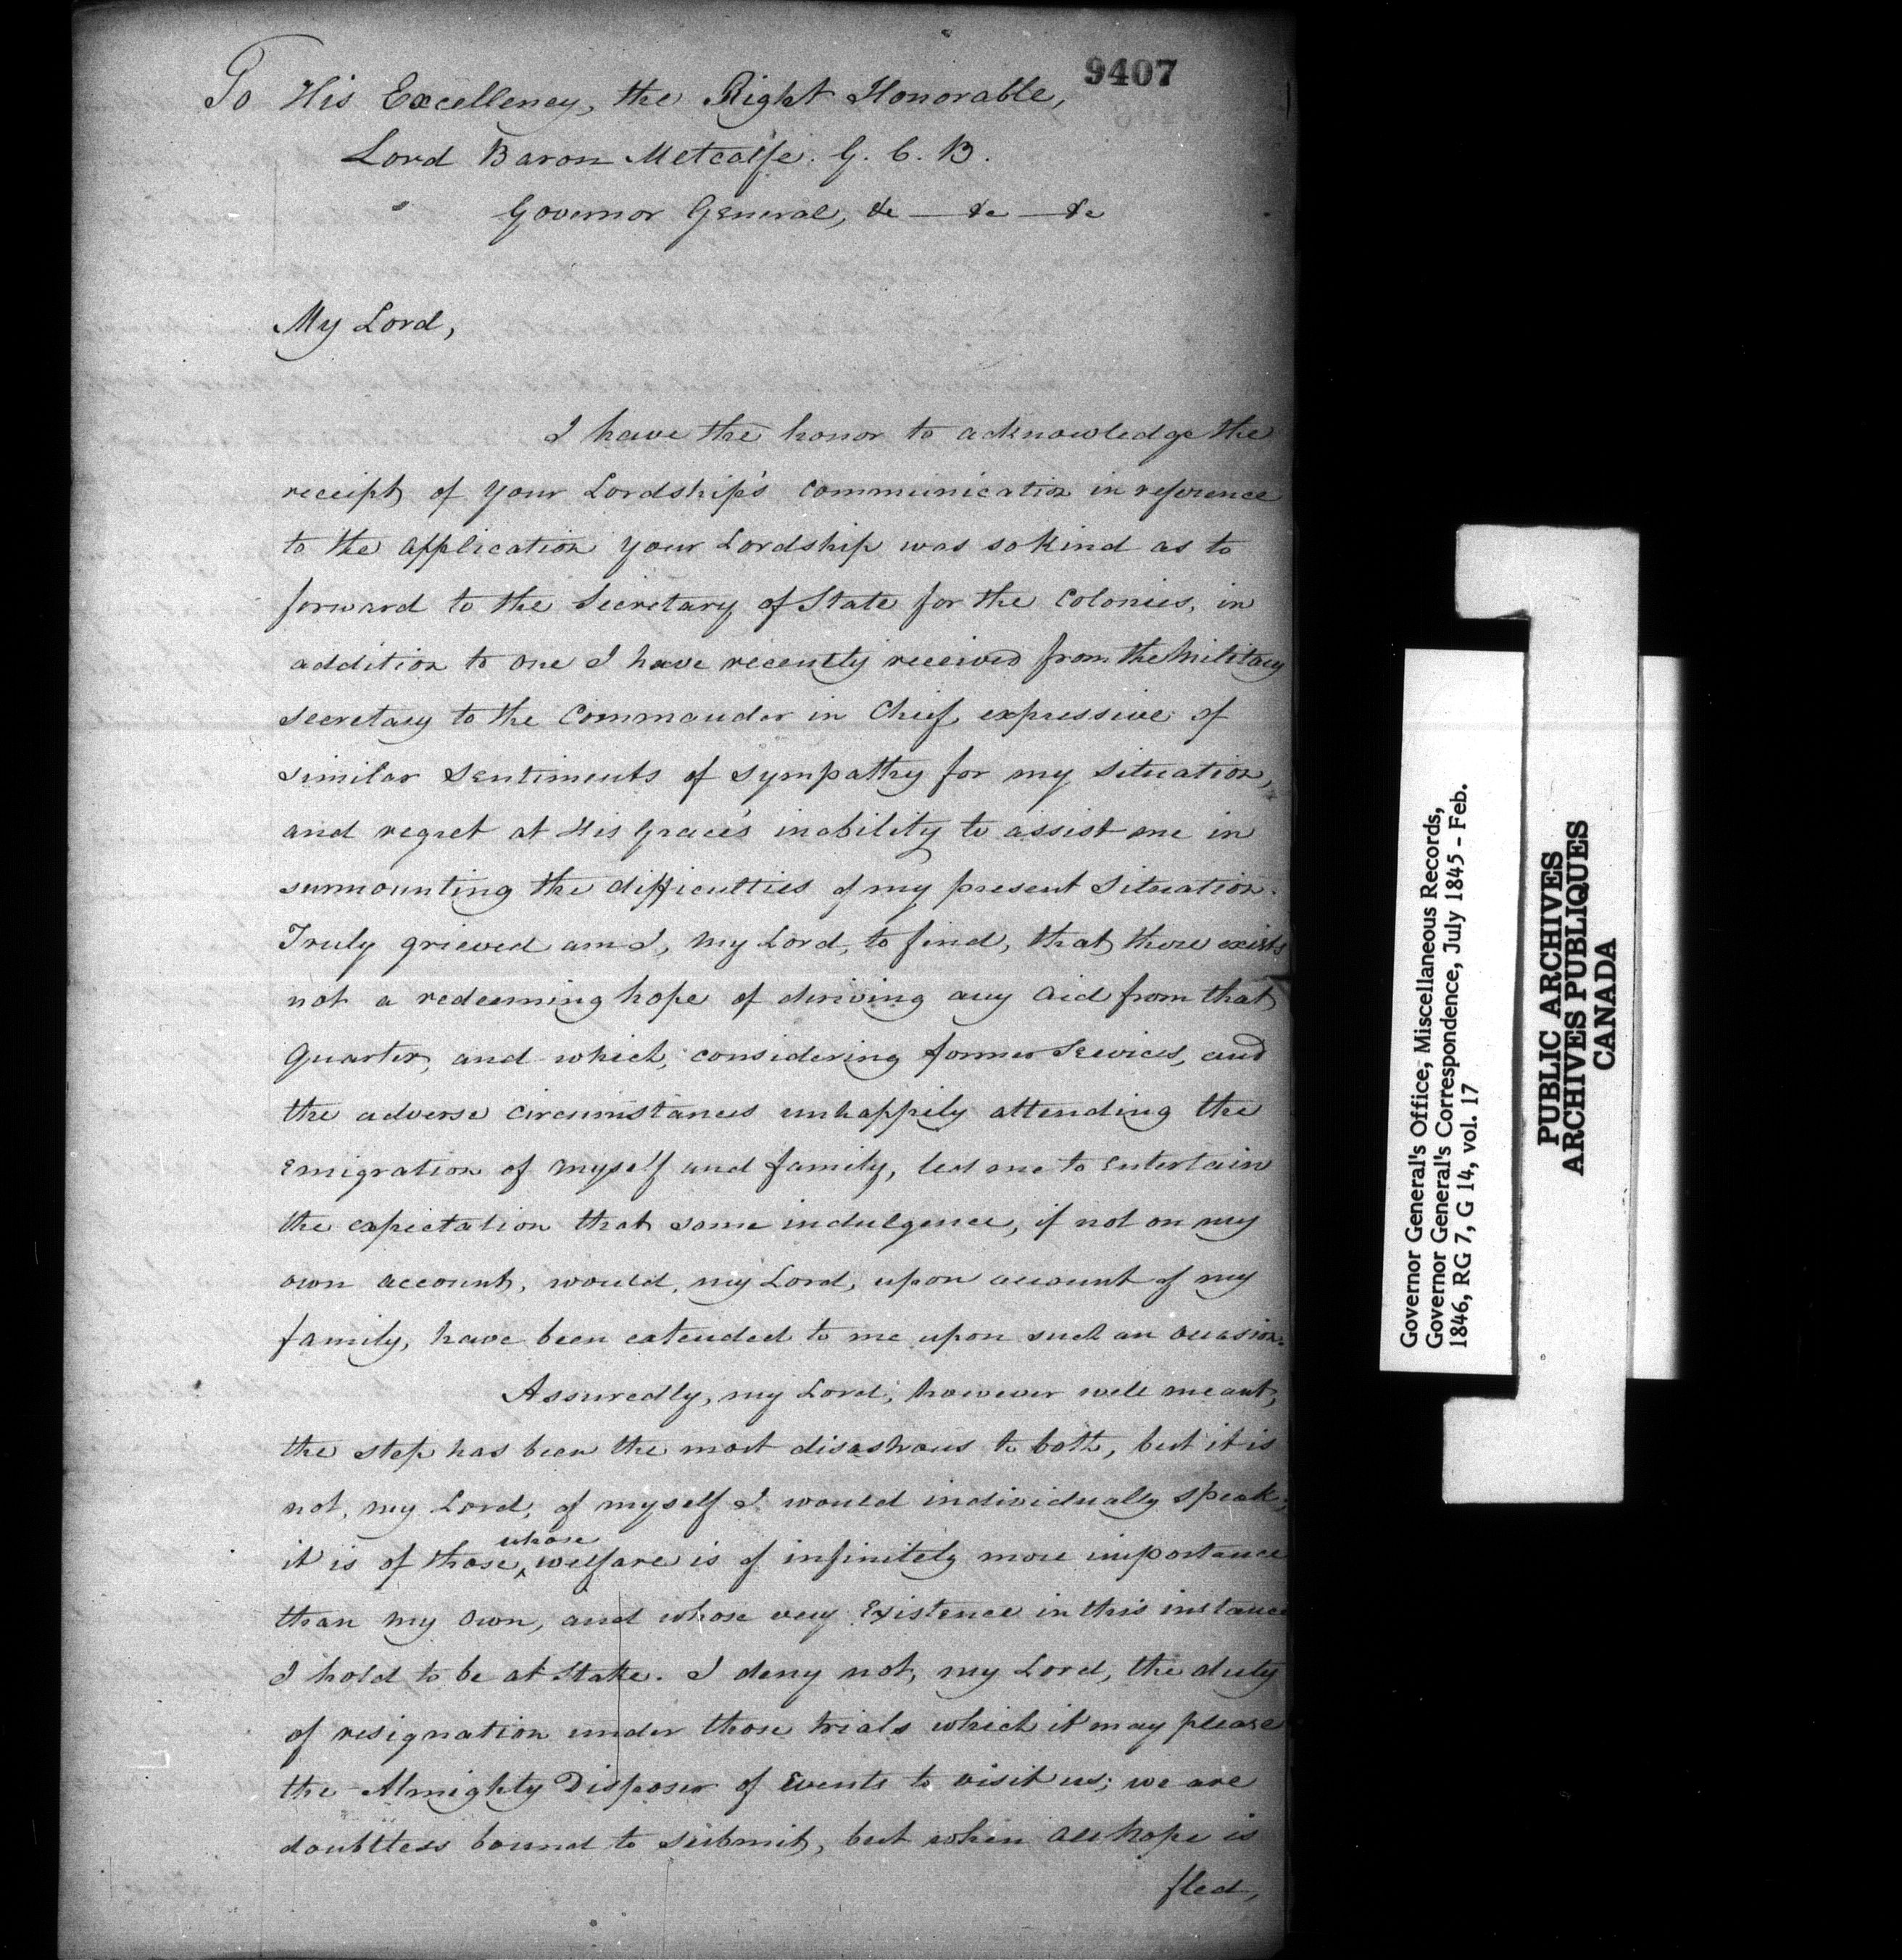 9407
To His Excellency, the Right Honorable,
Lord Baron Metcalfe. G. C. B.
Governor General, &c — &c — &c
My Lord,
I have the honor to acknowledge the
receipt of your Lordship's communication in reference
to the application your Lordship was so kind as to
forward to the Secretary of State for the Colonies, in
addition to one I have recently received from the Military
Secretary to the Commander in Chief, expressive of
similar sentiments of sympathy for my situation,
and regret at His Grace's inability to assist me in
surmounting the difficulties of my present situation.
Truly grieved am I, my Lord, to find, that there exists
not a redeeming hope of deriving any aid from that
Quarter, and which, considering former Services, and
the adverse circumstances unhappily attending the
Emigration of myself and family, led me to entertain
the expectation that some indulgence, if not on my
own account, would, my Lord, upon account of my
family, have been extended to me upon such an occasion.
Assuredly, my Lord, however well meant,
the step has been the most disastrous to both, but it is
not, my Lord, of myself I would individually speak;
it is of those ‸whose welfare is of infinitely more importance
than my own, and whose very Existence in this instance
I hold to be at Stake. I deny not, my Lord, the duty
of resignation under those trials which it may please
the Almighty Disposer of Events to visit us; we are
doubtless bound to submit, but when all hope is
fled,
Governor General's Office, Miscellaneous Records,
Governor General's Correspondence, July 1845 - Feb.
1846, RG 7, G 14, vol. 17
PUBLIC ARCHIVES
ARCHIVES PUBLIQUES
CANADA